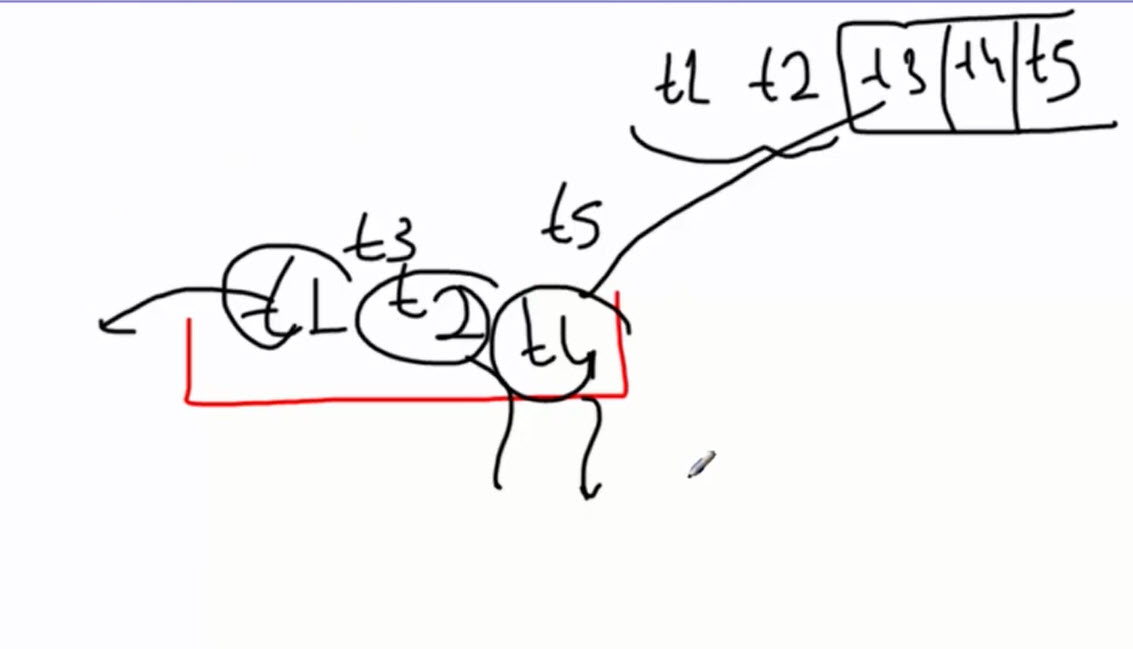 t1 t2 t3 t4 t5
t5
t3
t1 t2 t4